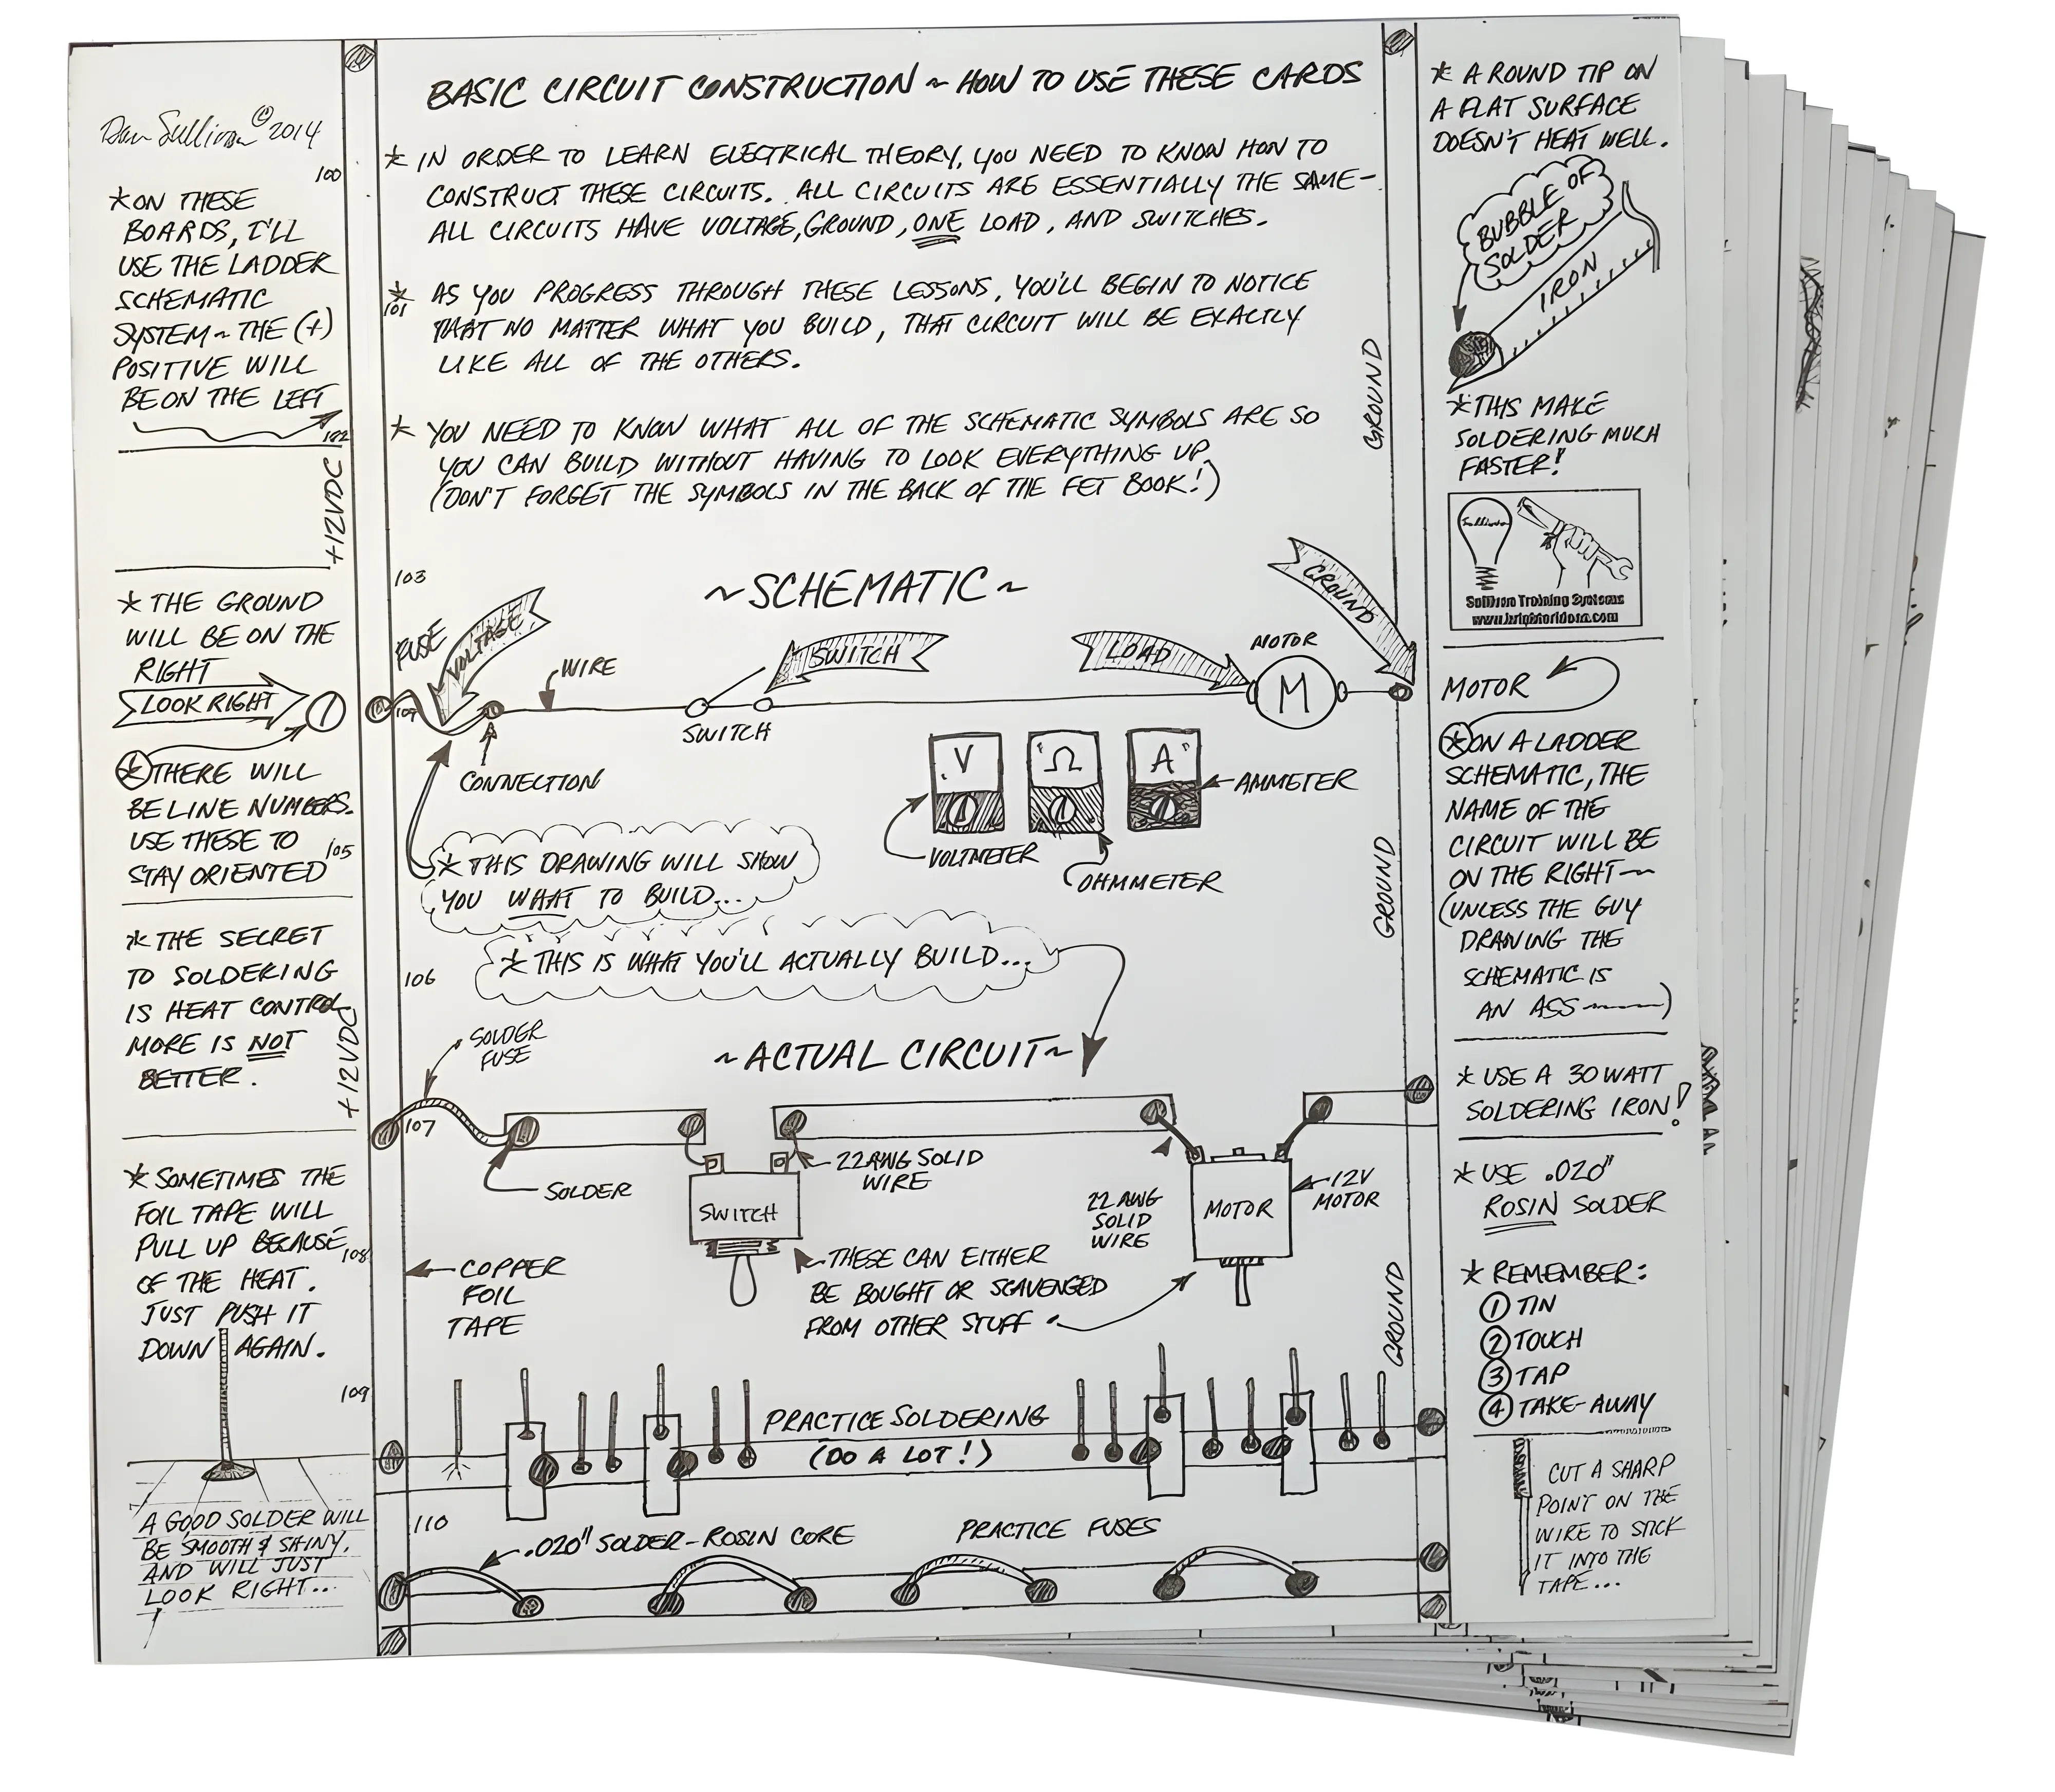 Dan Sullivan © 2014
100
* ON THESE
BOARDS, I'LL
USE THE LADDER
SCHEMATIC
SYSTEM ~ THE (+)
POSITIVE WILL
BE ON THE LEFT
102
+12VDC
* THE GROUND
WILL BE ON THE
RIGHT
LOOK RIGHT
1
* THERE WILL
BE LINE NUMBERS.
USE THESE TO
STAY ORIENTED
105
* THE SECRET
TO SOLDERING
IS HEAT CONTROL
MORE IS NOT
BETTER.
+12VDC
* SOMETIMES THE
FOIL TAPE WILL
PULL UP BECAUSE
OF THE HEAT.
JUST PUSH IT
DOWN AGAIN.
108
109
A GOOD SOLDER WILL
BE SMOOTH & SHINY,
AND WILL JUST
LOOK RIGHT...
BASIC CIRCUIT CONSTRUCTION ~ HOW TO USE THESE CARDS
* IN ORDER TO LEARN ELECTRICAL THEORY, YOU NEED TO KNOW HOW TO
CONSTRUCT THESE CIRCUITS. ALL CIRCUITS ARE ESSENTIALLY THE SAME -
ALL CIRCUITS HAVE VOLTAGE, GROUND, ONE LOAD, AND SWITCHES.
* AS YOU PROGRESS THROUGH THESE LESSONS, YOU'LL BEGIN TO NOTICE
101
THAT NO MATTER WHAT YOU BUILD, THAT CIRCUIT WILL BE EXACTLY
LIKE ALL OF THE OTHERS.
* YOU NEED TO KNOW WHAT ALL OF THE SCHEMATIC SYMBOLS ARE SO
YOU CAN BUILD WITHOUT HAVING TO LOOK EVERYTHING UP.
(DON'T FORGET THE SYMBOLS IN THE BACK OF THE FET BOOK!)
GROUND
103
~SCHEMATIC~
FUSE
VOLTAGE
WIRE
SWITCH
LOAD
MOTOR
GROUND
M
104
SWITCH
CONNECTION
V
Ω
A
AMMETER
VOLTMETER
OHMMETER
* THIS DRAWING WILL SHOW
YOU WHAT TO BUILD...
GROUND
* THIS IS WHAT YOU'LL ACTUALLY BUILD...
106
~ACTUAL CIRCUIT~
SOLDER
FUSE
107
SOLDER
22AWG SOLID
WIRE
SWITCH
22 AWG
SOLID
WIRE
MOTOR
12V
MOTOR
COPPER
FOIL
TAPE
THESE CAN EITHER
BE BOUGHT OR SCAVENGED
FROM OTHER STUFF
GROUND
PRACTICE SOLDERING
(DO A LOT!)
110
.020" SOLDER-ROSIN CORE
PRACTICE FUSES
* A ROUND TIP ON
A FLAT SURFACE
DOESN'T HEAT WELL.
BUBBLE OF
SOLDER
IRON
* THIS MAKE
SOLDERING MUCH
FASTER!
Sullivan
Sullivan Training Systems
MOTOR
* ON A LADDER
SCHEMATIC, THE
NAME OF THE
CIRCUIT WILL BE
ON THE RIGHT ~
(UNLESS THE GUY
DRAWING THE
SCHEMATIC IS
AN ASS ~)
* USE A 30 WATT
SOLDERING IRON!
* USE .020"
ROSIN SOLDER
* REMEMBER:
1 TIN
2 TOUCH
3 TAP
4 TAKE-AWAY
CUT A SHARP
POINT ON THE
WIRE TO STICK
IT INTO THE
TAPE...